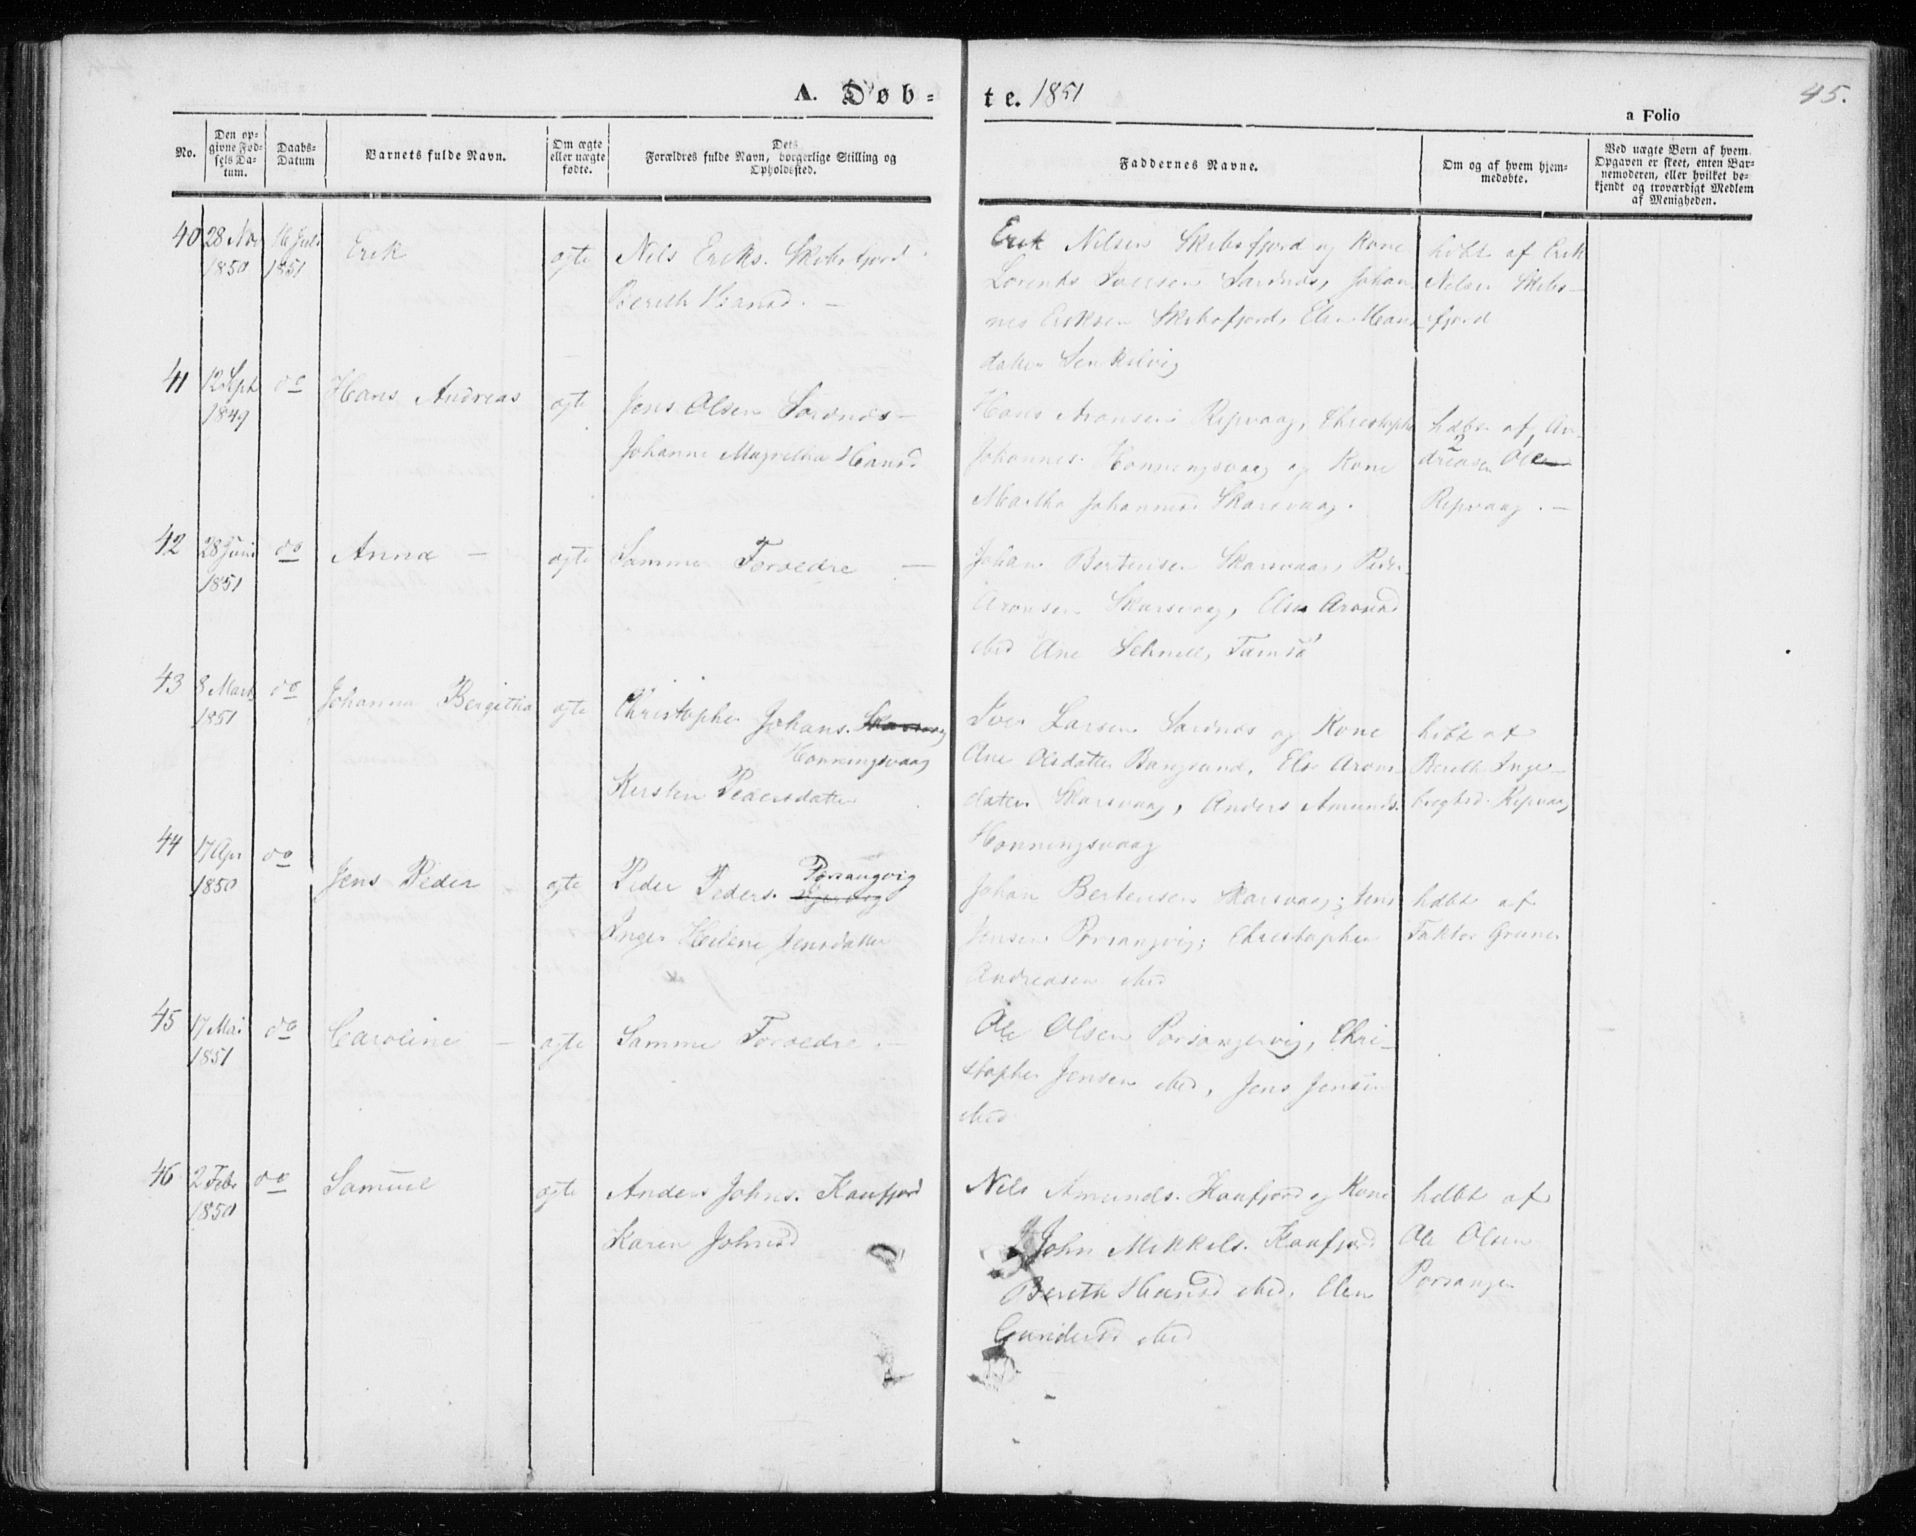 A. Døb-
te. 1851
45.
a Folio
No.
Den op-
givne Fød-
sels Da-
tum.
Daabs-
Datum
Barnets fulde Navn.
Om ægte
eller uægte
fødte.
Dets
Forældres fulde Navn, borgerlige Stilling og
Opholdssted.
Faddernes Navne.
Om og af hvem hjem-
medøbte.
Ved uægte Børn af hvem
Opgaven er skeet, enten Bar-
nemoderen, eller hvilket be-
kjendt og troværdigt Medlem
af Menigheden.
40 28 Nov 16 Juli Erik ægte Nils Eriks. Skibsfjord
1850 1851
Berith Hansd. —
Erik Nilsen Skibsfjord og Kone
Sarnæs, Johan
nes Eriksen Skibsfjord, Elen Hans
datter
hdbt af Erik
Nilsen Skibs-
fjord
41 12 Sept do Hans Andreas ægte Jens Olsen Sarnæs —
1849
Johanne Magretha Hansd
Hans Aronsen Repvaag, Christopher
Johannes. Honningsvaag og Kone
Martha Johannesd Skarsvaag.
hdbt af An-
dreasen Ole
Repvaag. —
42 28 Juni do Anna — ægte Samme Forældre —
1851
Johan Bertensen Skarsvaag, Peder
Aronsen Skarsvaag, Elen Aronsd
sted Ane Schnell, Tamsø
43 8 Marts do Johanna Bergitha ægte Christopher Johans. Skarsvaag
1851
Honningsvaag
Kirsten Pedersdatter
Iver Larsen Sarnæs og Kone
Ane Olsdatter, Else Arons
datter Skarsvaag, Anders Amunds.
Honningsvaag
hdbt af
Berith Inge-
brigtsd. Repvaag
44 17 Apr do Jens Peder ægte Peder Peders. Porsangvig
1850
Inger Helene Jensdatter
Johan Bertensen Skarsvaag; Jens
Jensen Porsangvig; Christopher
Andreasen sted
hdbt af
Faktor Gruner
45 17 Mai do Caroline — ægte Samme Forældre. —
1851
Ole Olsen Porsangervig, Chri-
stopher Jensen sted, Jens Jensen
sted
46 2 Febr do Samuel ægte Anders Johns. Kaafjord
1850
Karen Johnsd
Nils Amunds. Kaafjord og Kone
John Mikkels. Kaafjord
Berith Hansd sted, Elen
Gundersd sted
hdbt af
Ole Olsen
Porsanger